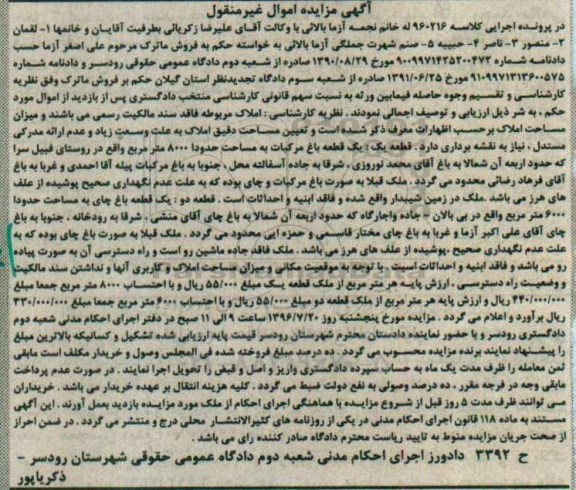 آگهی مزایده اموال غیرمنقول
در پرونده اجرایی کلاسه ۹۶۰۲۱۶ له خانم نجمه آزما بالائی با وکالت آقای علیرضا زکریائی بطرفیت آقایان و خانمها ۱- لقمان
۲- منصور ۳- ناصر ۴- حبیبه ۵- صنم شهرت جملگی آزما بالائی به خواسته حکم به فروش ماترک مرحوم علی اصغر آزما حسب
دادنامه شماره ۹۰۰۹۹۷۱۴۲۵۲۰۰۴۷۲ مورخ ۱۳۹۰/۰۸/۲۹ صادره از شعبه دوم دادگاه عمومی حقوقی رودسر و دادنامه شماره
۹۱۰۹۹۷۱۳۱۳۶۰۰۵۷۵ مورخ ۱۳۹۱/۰۶/۲۵ صادره از شعبه سوم دادگاه تجدیدنظر استان گیلان حکم بر فروش ماترک وفق نظریه
کارشناسی و تقسیم وجوه حاصله فیمابین ورثه به نسبت سهم قانونی کارشناسی منتخب دادگستری پس از بازدید از اموال مورد
حکم ، به شر ذیل ارزیابی و توصیف اجمالی نمودند . نظریه کارشناسی : املاک مربوطه فاقد سند مالکیت رسمی می باشند و میزان
مساحت املاک برحسب اظهارات معرف ذکر شده است و تعیین مساحت دقیق املاک به علت وسعت زیاد و عدم ارائه مدرکی
مستدل ، نیاز به نقشه برداری دارد . قطعه یک : یک قطعه باغ مرکبات به مساحت حدودا ۸۰۰۰ متر مربع واقع در روستای فیبل سرا
که حدود اربعه آن شمالا به باغ آقای محمد نوروزی ، شرقا به جاده آسفالته محل ، جنوبا به باغ مرکبات پیله آقا احمدی و غربا به باغ
آقای فرهاد رضائی محدود می گردد . ملک قبلا به صورت باغ مرکبات و چای بوده که به علت عدم نگهداری صحیح پوشیده از علف
های هرز می باشد .ملک در زمین شیبدار واقع شده و فاقد ابنیه و احداثات است . قطعه دو : یک قطعه باغ چای به مساحت حدودا
۶۰۰۰ متر مربع واقع در بی بالان - جاده واجارگاه که حدود اربعه آن شمالا به باغ چای آقای منشی ، شرقا به رودخانه ، جنوبا به باغ
چای آقای علی اکبر آزما و غربا به باغ چای مختار قاسمی و حمزه ایی محدود می گردد . ملک قبلا به صورت باغ چای بوده که به
علت عدم نگهداری صحیح ،پوشیده از علف های هرز می باشد . ملک فاقد جاده ماشین رو است و راه دسترسی آن به صورت پیاده
رو می باشد و فاقد ابنیه و احداثات اسیت . با توجه به موقعیت مکانی و میزان مساحت املاک و کاربری آنها و نداشتن سند مالکیت
و وضعیت راه دسترسی . ارزش پایه هر متر مربع از ملک قطعه یک مبلغ ۵۵/۰۰۰ ریال و با احتساب ۸۰۰۰ متر مربع جمعا مبلغ
۴۴۰/۰۰۰/۰۰۰ ریال و ارزش پایه هر متر مربع از ملک قطعه دو مبلغ ۵۵/۰۰۰ ریال و با احتساب ۶۰۰۰ متر مربع جمعا مبلغ ۳۳۰/۰۰۰/۰۰۰
ریال برآورد و اعلام می گردد . مزایده مورخ پنجشنبه روز ۱۳۹۶/۷/۲۰ ساعت ۹ الی ۱۱ صبح در دفتر اجرای احکام مدنی شعبه دوم
دادگستری رودسر و با حضور نماینده دادستان محترم شهرستان رودسر قیمت پایه ارزیابی شده تشکیل و کسانیکه بالاترین مبلغ
را پیشنهاد نمایند برنده مزایده محسوب می گردد . ده درصد مبلغ فروخته شده فی المجلس وصول و خریدار مکلف است مابقی
ثمن معامله را ظرف مدت یک ماه به حساب سپرده دادگستری واریز و اصل و قبض را تحویل اجرا نمایند . در صورت عدم پرداخت
مابقی وجه در فرجه مقرر ، ده درصد وصولی به نفع دولت ضبط می گردد . کلیه هزینه انتقال بر عهده خریدار می باشد . خریداران
می توانند ظرف مدت ۵ روز قبل از شروع مزایده با هماهنگی اجرای احکام از ملک مورد مزایده بازدید بعمل آورند . این آگهی
مستند به ماده ۱۱۸ قانون اجرای احکام مدنی در یکی از روزنامه های کثیرالانتشار محلی درج و منتشر می گردد . در ضمن احراز
از صحت جریان مزایده منوط به تایید ریاست محترم دادگاه صادر کننده رای می باشد .
ح ۳۳۹۲ دادورز اجرای احکام مدنی شعبه دوم دادگاه عمومی حقوقی شهرستان رودسر -
ذکریاپور